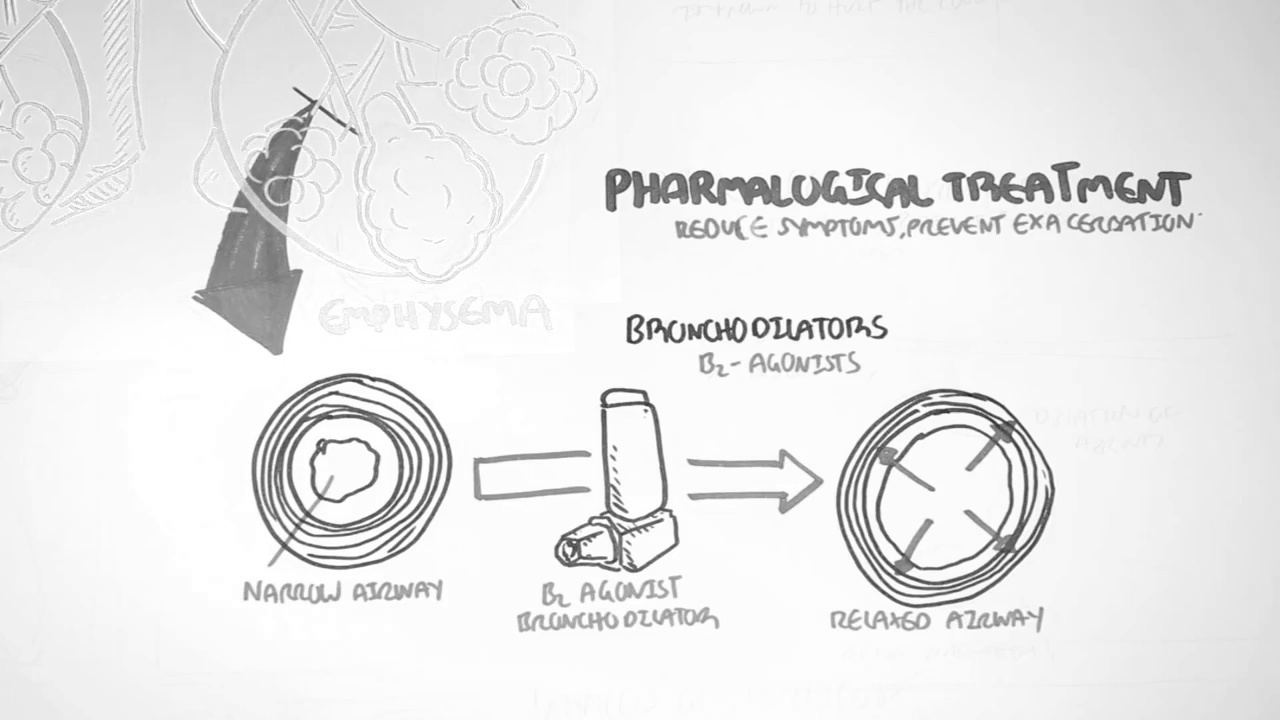 PHARMALOGICAL TREATMENT
REDUCE SYMPTOMS, PREVENT EXACERBATION
EMPHYSEMA
BRONCHODILATORS
B2 - AGONISTS
NARROW AIRWAY
B2 AGONIST
BRONCHODILATOR
RELAXED AIRWAY